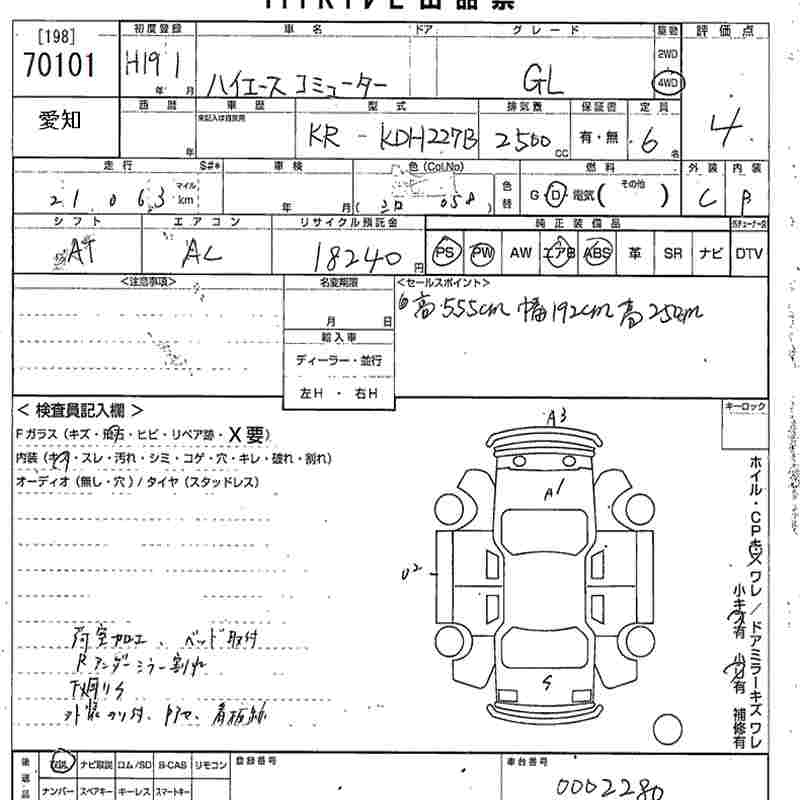 [198]
70101
愛知
初度登録 車名 ドア グレード 駆動 評価点
H19 1 年 月 ハイエース コミューター GL 2WD 4WD 4
西暦 車歴 型式 排気量 保証書 定員
未記入は自家用
年 KR - KDH227B 2500 CC 有・無 6 名
走行 S#* 車検 色(Col.No) 燃料 外装 内装
21063 マイル km 年 月 ( 058 ) 色替 G・D・電気 ( その他 ) C B
シフト エアコン リサイクル預託金 純正装備品
AT AC 18240 円 PS PW AW エアB ABS 革 SR ナビ DTV
<注意事項> 名変期限 <セールスポイント>
月 日 高 555cm 幅 192cm 高 250cm
輸入車
ディーラー・並行
左H ・ 右H
< 検査員記入欄 > キーロック
Fガラス (キズ・飛石・ヒビ・リペア跡・X要)
内装 (キズ・スレ・汚れ・シミ・コゲ・穴・キレ・破れ・割れ)
オーディオ (無し・穴) / タイヤ (スタッドレス)
A3
A1
U2
S
荷室加工、ベッド取付
Rアンダーミラー割れ
下廻りS
ホイル・CPキズワレ/ドアミラーキズワレ
小キズ有 小U有 補修有
後送品 取説 ナビ取説 ロム/SD B-CAS リモコン 登録番号 車台番号
ナンバー スペアキー キーレス スマートキー 0002280